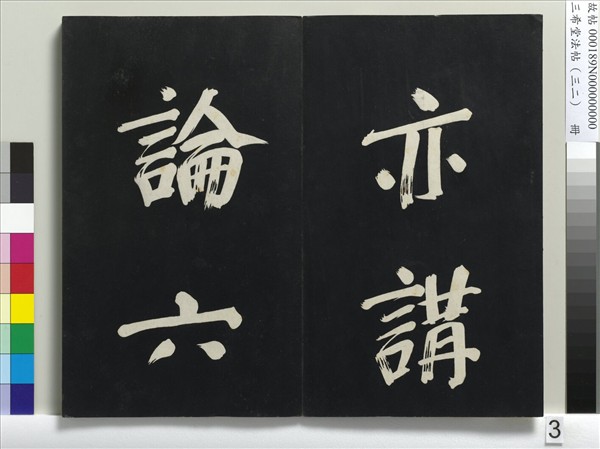 亦講
論六
故帖 000189N000000000
三希堂法帖（三二） 冊
3